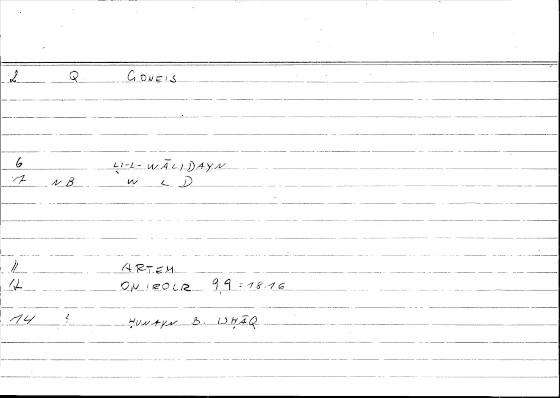 2 Q GONEIS
6 LI-L-WĀLIDAYN
7 NB W L D
11 ARTEM
12 ONIROCR 9,9 = 18.16
14 : ḤUNAYN B. ISḤĀQ